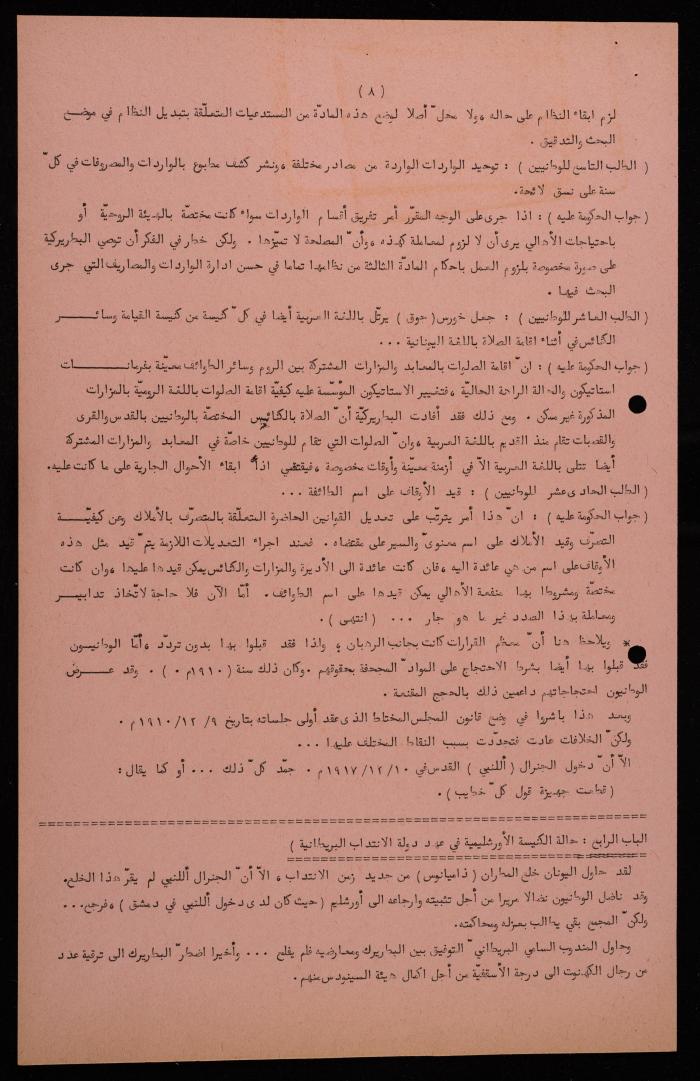 ( ٨ )
لزم ابقاء النظام على حاله ، ولا محلّ أصلا لوضع هذه المادّة من المستدعيات المتعلّقة بتبديل النظام في موضع
البحث والتدقيق .
( الطلب التاسع للوطنيين ) : توحيد الواردات الواردة من مصادر مختلفة ، ونشر كشف مطبوع بالواردات والمصروفات في كلّ
سنة على نسق لائحة.
( جواب الحكومة عليه ) : اذا جرى على الوجه المقرّر أمر تفريق أقسام الواردات سواء كانت مختصّة بالهيئة الروحيّة أو
باحتياجات الأهالي يرى أن لا لزوم لمعاملة كهذه ، وأنّ المصلحة لا تميّزها . ولكن خطر في الفكر أن توصي البطريركية
على صورة مخصوصة بلزوم العمل باحكام المادّة الثالثة من نظامها تماما في حسن ادارة الواردات والمصاريف التي جرى
البحث فيها .
( الطلب العاشر للوطنيين ) : جعل خورس ( جوق ) يرتّل باللغة العربية أيضا في كلّ كنيسة من كنيسة القيامة وسائـــر
الكنائس في أثناء اقامة الصلاة باللغة اليونانية ...
( جواب الحكومة عليه ) : انّ اقامة الصلوات بالمعابد والمزارات المشتركة بين الروم وسائر الطوائف معيّنة بفرمانـــات
استاتيكون والحالة الراهنة الحاليّة ، فتغيير الاستاتيكون المؤسّسة عليه كيفيّة اقامة الصلوات باللغة الروميّة بالمزارات
المذكورة غير ممكن . ومع ذلك فقد أفادت البطريركيّة أنّ الصلاة بالكنائس المختصّة بالوطنيين بالقدس والقرى
والقصبات تقام منذ القديم باللغة العربية ، وانّ الصلوات التي تقام للوطنيين خاصّة في المعابد والمزارات المشتركة
أيضا تتلى باللغة العربية الاّ في أزمنة معيّنة وأوقات مخصوصة ، فيقتضي اذا ابقاء الأحوال الجارية على ما كانت عليه.
( الطلب الحادى عشر للوطنيين ) : قيد الأوقاف على اسم الطائفة ...
( جواب الحكومة عليه ) : انّ هذا أمر يترتّب على تعديل القوانين الحاضرة المتعلّقة بالمتصرّف بالأملاك وعن كيفيّــة
التصرّف وقيد الأملاك على اسم معنويّ والسير على مقتضاه . فعند اجراء التعديلات اللازمة يتمّ قيد مثل هذه
الأوقاف على اسم من هي عائدة اليه ، فان كانت عائدة الى الأديرة والمزارات والكنائس يمكن قيدها عليها ، وان كانت
مختصّة ومشروطا بها منفعة الأهالي يمكن قيدها على اسم الطوائف. أمّا الآن فلا حاجة لاتّخاذ تدابيــر
ومعاملة بهذا الصدد غير ما هو جار ... ( انتهى ) .
* ويلاحظ هنا أنّ معظم القرارات كانت بجانب الرهبان ، ولذا فقد قبلوا بها بدون تردّد ، أمّا الوطنيــون
فقد قبلوا بها أيضا بشرط الاحتجاج على الموادّ المجحفة بحقوقهم . وكان ذلك سنة ( ١٩١٠م . ) . وقد عــرض
الوطنيون احتجاجاتهم داعمين ذلك بالحجج المقنعة .
وبعد هذا باشروا في وضع قانون المجلس المختلط الذى عقد أولى جلساته بتاريخ ٩/ ١٢/ ١٩١٠م .
ولكنّ الخلافات عادت فتجدّدت بسبب النقاط المختلف عليها ...
الاّ أنّ دخول الجنرال ( أللنبي ) القدس في ١٠/ ١٢/ ١٩١٧م . جمّد كلّ ذلك ... أو كما يقال :
( قطعت جهيزة قول كلّ خطيب ) .
الباب الرابع : حالة الكنيسة الأورشليمية في عهد دولة الانتداب البريطانية )
لقد حاول اليونان خلع المطران ( ذاميانوس ) من جديد زمن الانتداب ، الاّ أنّ الجنرال أللنبي لم يقرّ هذا الخلع.
وقد ناضل الوطنيون نضالا مريرا من أجل تثبيته وارجاعه الى أورشليم ( حيث كان لدى دخول أللنبي في دمشق ) ، فرجع...
ولكنّ المجمع بقي يطالب بعزله ومحاكمته.
وحاول المندوب السامي البريطانيّ التوفيق بين البطريرك ومعارضيه فلم يفلح ... وأخيرا اضطرّ البطريرك الى ترقية عدد
من رجال الكهنوت الى درجة الأسقفيّة من أجل اكمال هيئة السينودس منهم.